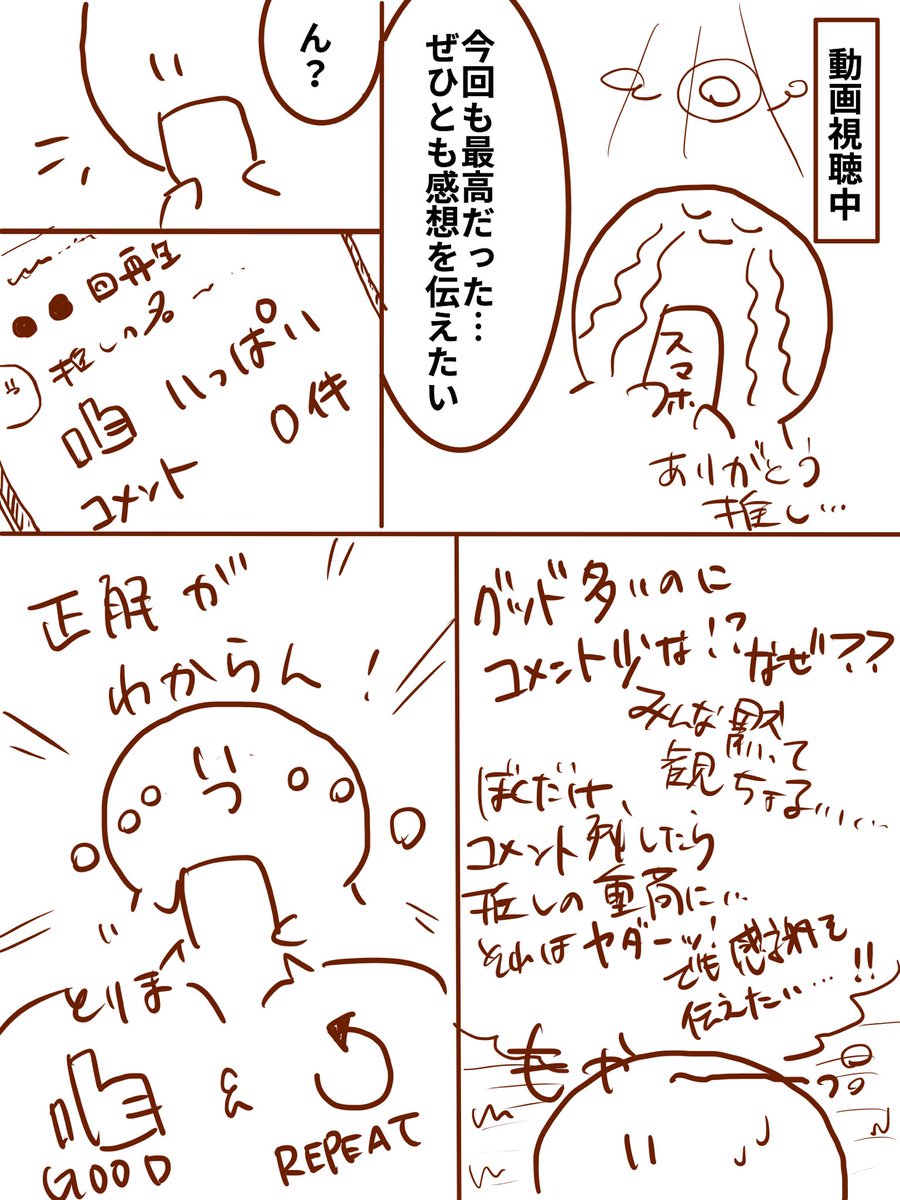 動画視聴中
今回も最高だった…
ぜひとも感想を伝えたい
スマホ
ありがとう
推し…
ん?
●●回再生
推しの名
いっぱい
コメント 0件
グッド多いのに
コメント少な!?なぜ??
みんな黙って
観ちょる……
ぼくだけ
コメント残したら
推しの重荷に…
それはヤダーッ!
でも感謝を
伝えたい…!!
もや
正解が
わからん!
とりま
GOOD
&
REPEAT